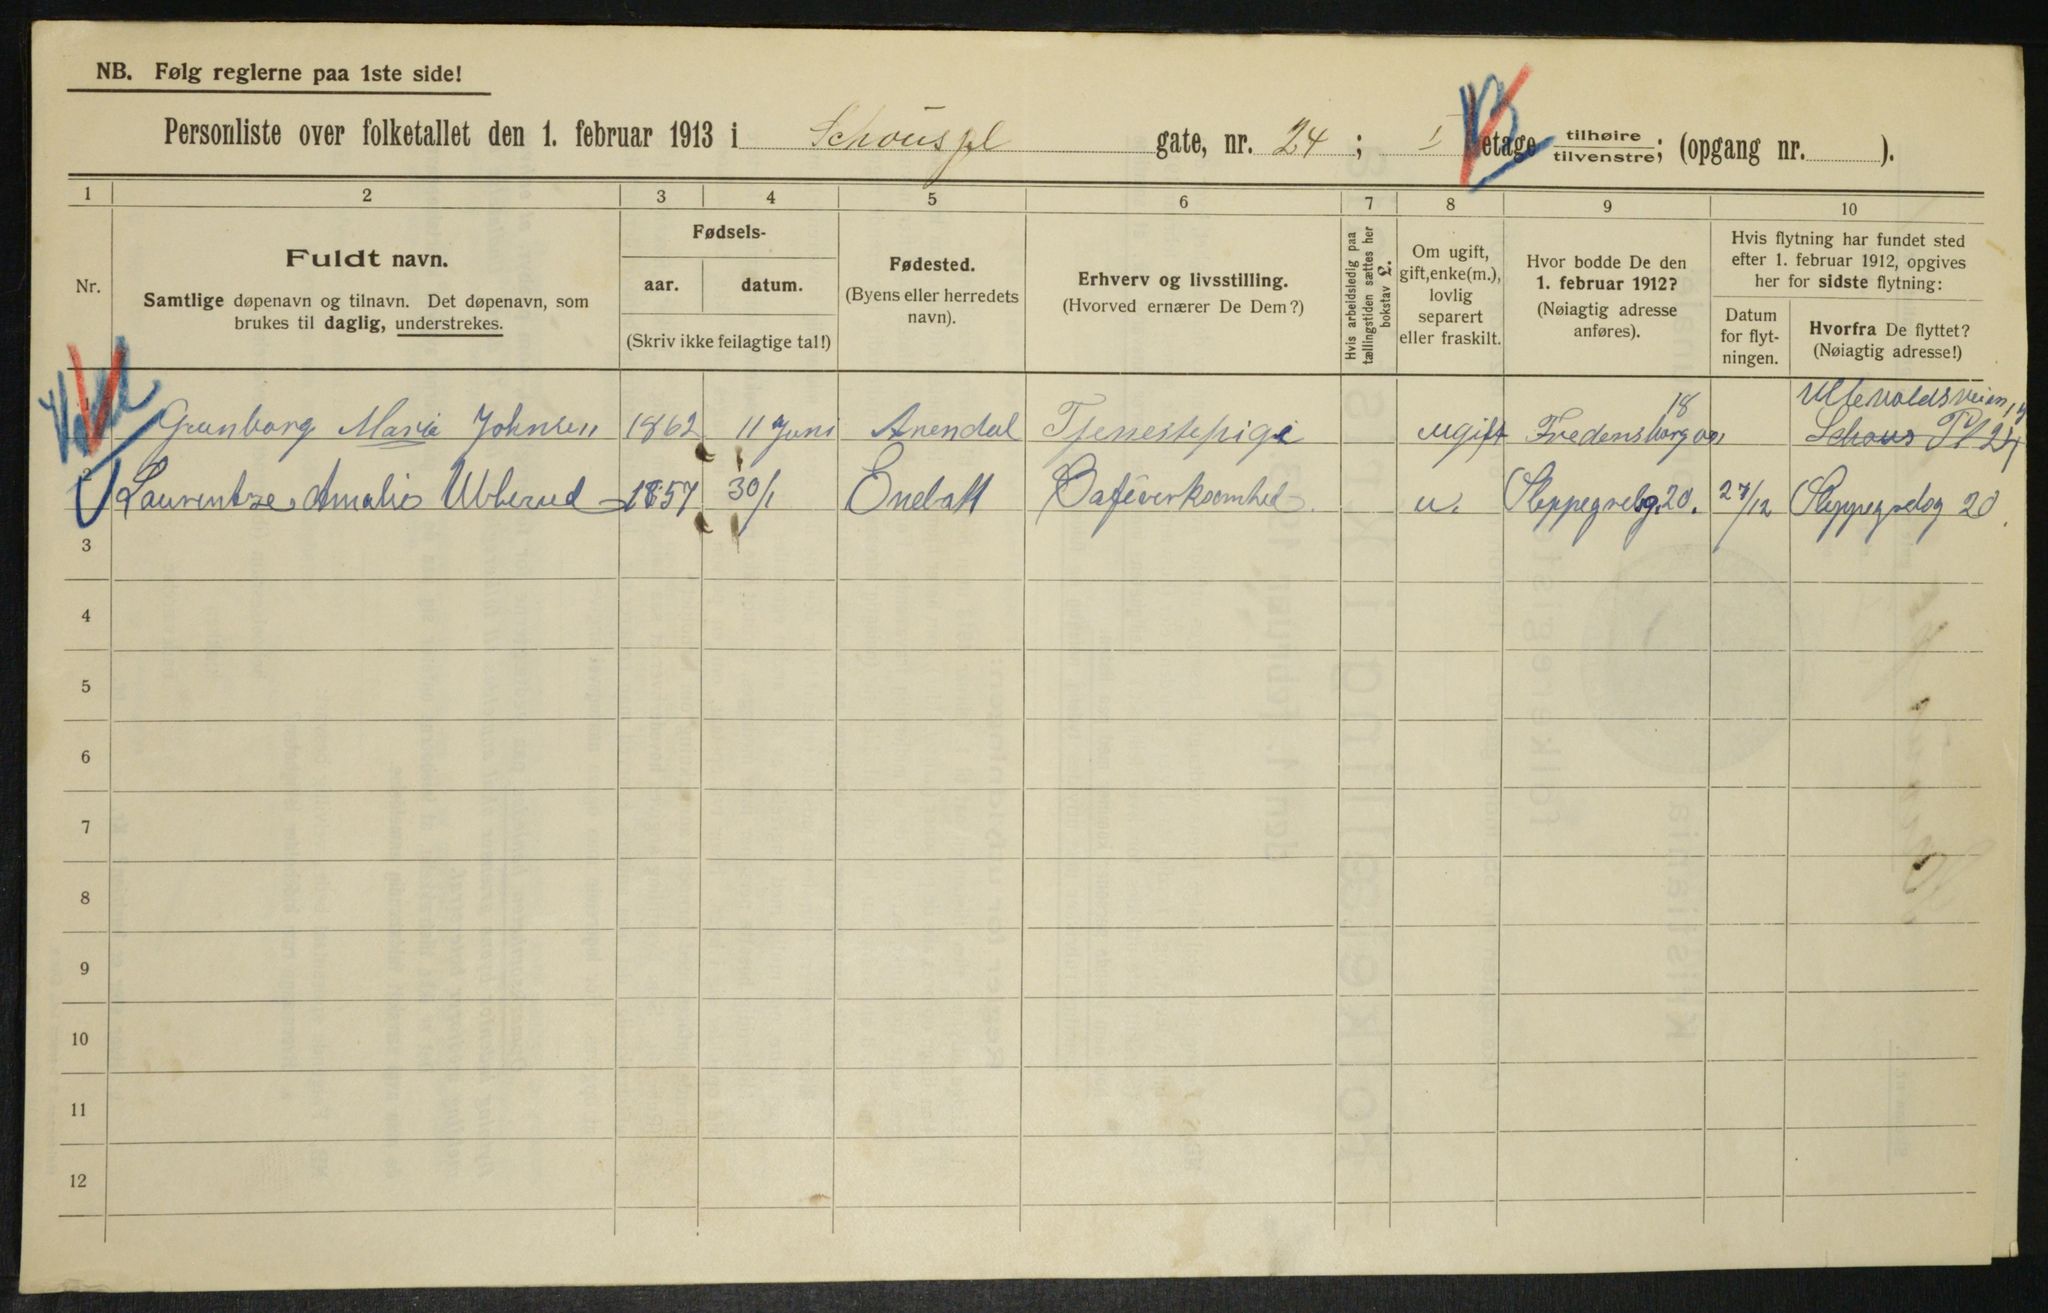 NB. Følg reglerne paa 1ste side!
Personliste over folketallet den 1. februar 1913 i Schous pl gate, nr. 24 ; I etage tilhøire tilvenstre; (opgang nr. ).
1 2 3 4 5 6 7 8 9 10
Nr.
Fuldt navn.
Samtlige døpenavn og tilnavn. Det døpenavn, som
brukes til daglig, understrekes.
Fødsels-
aar. datum.
(Skriv ikke feilagtige tal!)
Fødested.
(Byens eller herredets
navn).
Erhverv og livsstilling.
(Hvorved ernærer De Dem?)
Hvis arbeidsledig paa
tællingstiden sættes her
bokstav L.
Om ugift,
gift, enke(m.),
lovlig
separert
eller fraskilt.
Hvor bodde De den
1. februar 1912?
(Nøiagtig adresse
anføres).
Hvis flytning har fundet sted
efter 1. februar 1912, opgives
her for sidste flytning:
Datum
for flyt-
ningen.
Hvorfra De flyttet?
(Nøiagtig adresse!)
1 Gunborg Maria Johnsen 1862 11 Juni Arendal Tjenestepige ugift Fredensborgve 18 Ullevoldsveien 17 Schous Pl 24
2 Laurentze Amalie Ulberud 1857 30/1 Enebak Caféverksomhed u. Steppegrelsg. 20. 27/12 20
3
4
5
6
7
8
9
10
11
12